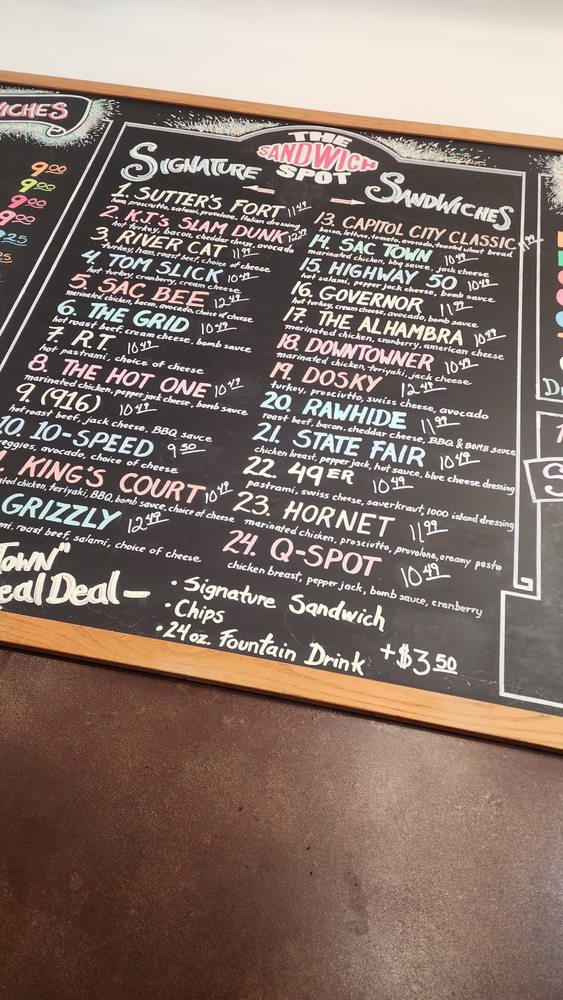 WICHES
9.00
9.00
9.00
9.00
9.25
THE
SANDWICH
SPOT
SIGNATURE
SANDWICHES
1. SUTTER'S FORT 11.49
ham, prosciutto, salami, provolone, Italian dressing
2. KJ's SLAM DUNK
hot turkey, bacon, cheddar cheese, avocado
3. RIVER CAT 11.99
turkey, ham, roast beef, choice of cheese
4. TOM SLICK 10.49
hot turkey, cranberry, cream cheese
5. SAC BEE 12.49
marinated chicken, bacon, avocado, choice of cheese
6. THE GRID 10.49
hot roast beef, cream cheese, bomb sauce
7. R.T. 10.49
hot pastrami, choice of cheese
8. THE HOT ONE 10.49
marinated chicken, pepper jack cheese, bomb sauce
9. (916) 10.49
hot roast beef, jack cheese, BBQ sauce
10. 10-SPEED 9.50
veggies, avocado, choice of cheese
. KING'S COURT 10.49
ted chicken, teriyaki, BBQ, bomb sauce, choice of cheese
GRIZZLY 12.49
mi, roast beef, salami, choice of cheese
13. CAPITOL CITY CLASSIC
bacon, lettuce, tomato, avocado, toasted wheat bread
14. SAC TOWN 10.49
marinated chicken, bbq sauce, jack cheese
15. HIGHWAY 50 10.49
hot salami, pepper jack cheese, bomb sauce
16. GOVERNOR 11.99
hot turkey, cream cheese, avocado, bomb sauce
17. THE ALHAMBRA 10.49
marinated chicken, cranberry, american cheese
18. DOWNTOWNER 10.49
marinated chicken, teriyaki, jack cheese
19. DOSKY 12.49
turkey, prosciutto, swiss cheese, avocado
20. RAWHIDE 11.99
roast beef, bacon, cheddar cheese, BBQ & BOMB sauce
21. STATE FAIR 10.49
chicken breast, pepper jack, hot sauce, blue cheese dressing
22. 49ER 10.49
pastrami, swiss cheese, sauerkraut, 1000 island dressing
23. HORNET 11.99
marinated chicken, prosciutto, provolone, creamy pesto
24. Q-SPOT 10.49
chicken breast, pepper jack, bomb sauce, cranberry
Town"
eal Deal —
• Signature Sandwich
• Chips
• 24 oz. Fountain Drink +$3.50